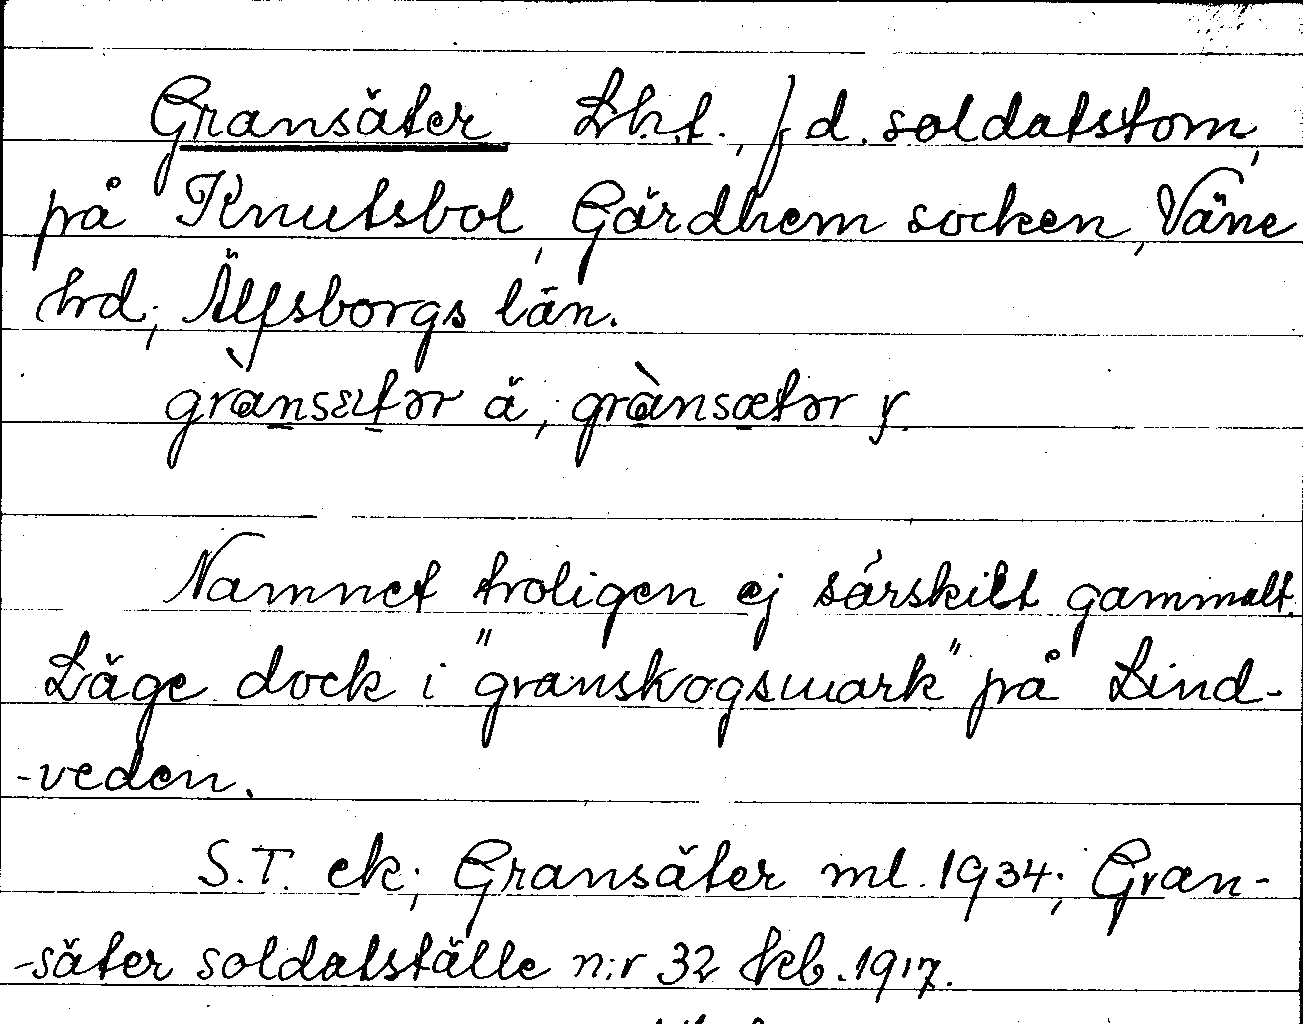 Gransäter Lht., f d. soldatstom,
på Knutsbol, Gärdhem socken, Väne
hrd; Älfsborgs län.
grànsætər ä, grànsætər y.
Namnet troligen ej särskilt gammalt.
Läge dock i "granskogsmark" på Lind-
-veden.
S.T. ek; Gransäter ml. 1934; Gran-
-säter soldatställe n:r 32 kb. 1917.